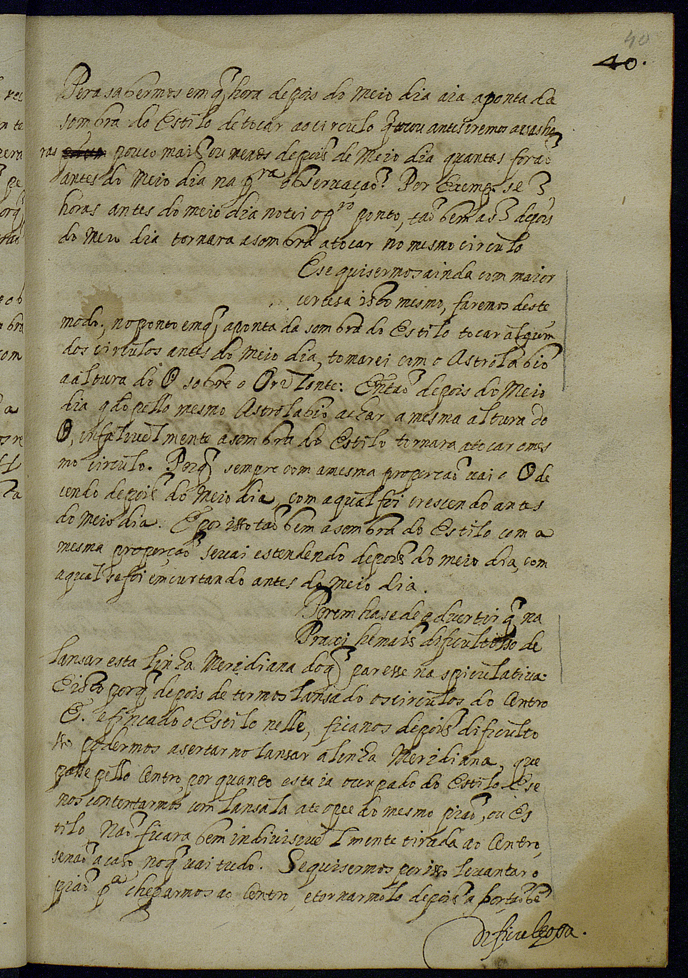 40
40.
Pera sabermos em q̃ hora depois do meio dia aia aponta da
sombra do Estilo de tocar ao circulo q̃ tocou antes iremos
ras pouco mais ou menos depois de Meio dia quantas foraõ
antes do Meio dia na pra observaçaõ. Por Exemp. se 3
horas antes do meio dia notei o pro ponto, taõ bem as 3 depois
do Meio dia tornara a sombra a tocar no mesmo circulo
E se quisermos ainda com maior
certesa isto mesmo, faremos deste
modo. no ponto em q̃ aponta da sombra do Estilo tocar algum
dos circulos antes do Meio dia, tomarei com o Astrolabio
a altura do O sobre o Orizonte: Entaõ depois do Meio
dia qdo pello mesmo Astrolabio achar a mesma altura do
O, infaliuelmente a sombra do Estilo tornara a tocar o mes
mo circulo. Porq̃ sempre com a mesma proporcaõ vai o O de
cendo depois do Meio dia, com a qual foi crescendo antes
do Meio dia. E por isso taõ bem a sombra do Estilo com a
mesma proporçaõ se uai estendendo depois do meio dia, com
a qual se foi emcurtando antes do Meio dia.
Porem hase de aduertir q̃ na
Praxi he mais dificultoso de
lansar esta linha Meridiana do q̃ paresse na spiculatiua.
E isto porq̃ depois de termos lansado os circulos do Centro
E. e fincado o Estilo nelle, ficanos depois dificulto
so podermos asertar no lansar a linha Meridiana, que
passe pello Centro, por quanto esta ia ocupado do Estilo. E se
nos contentarmos com lansala ate o pee do mesmo piaõ, ou Es
tilo, Naõ ficara bem indiuisiuelmente tirada ao Centro,
senaõ a caso, no q̃ uai tudo. Se quisermos por isso leuantar o
piaõ pa chegarmos ao Centro, e tornarmolo depois a por, taõ bẽ